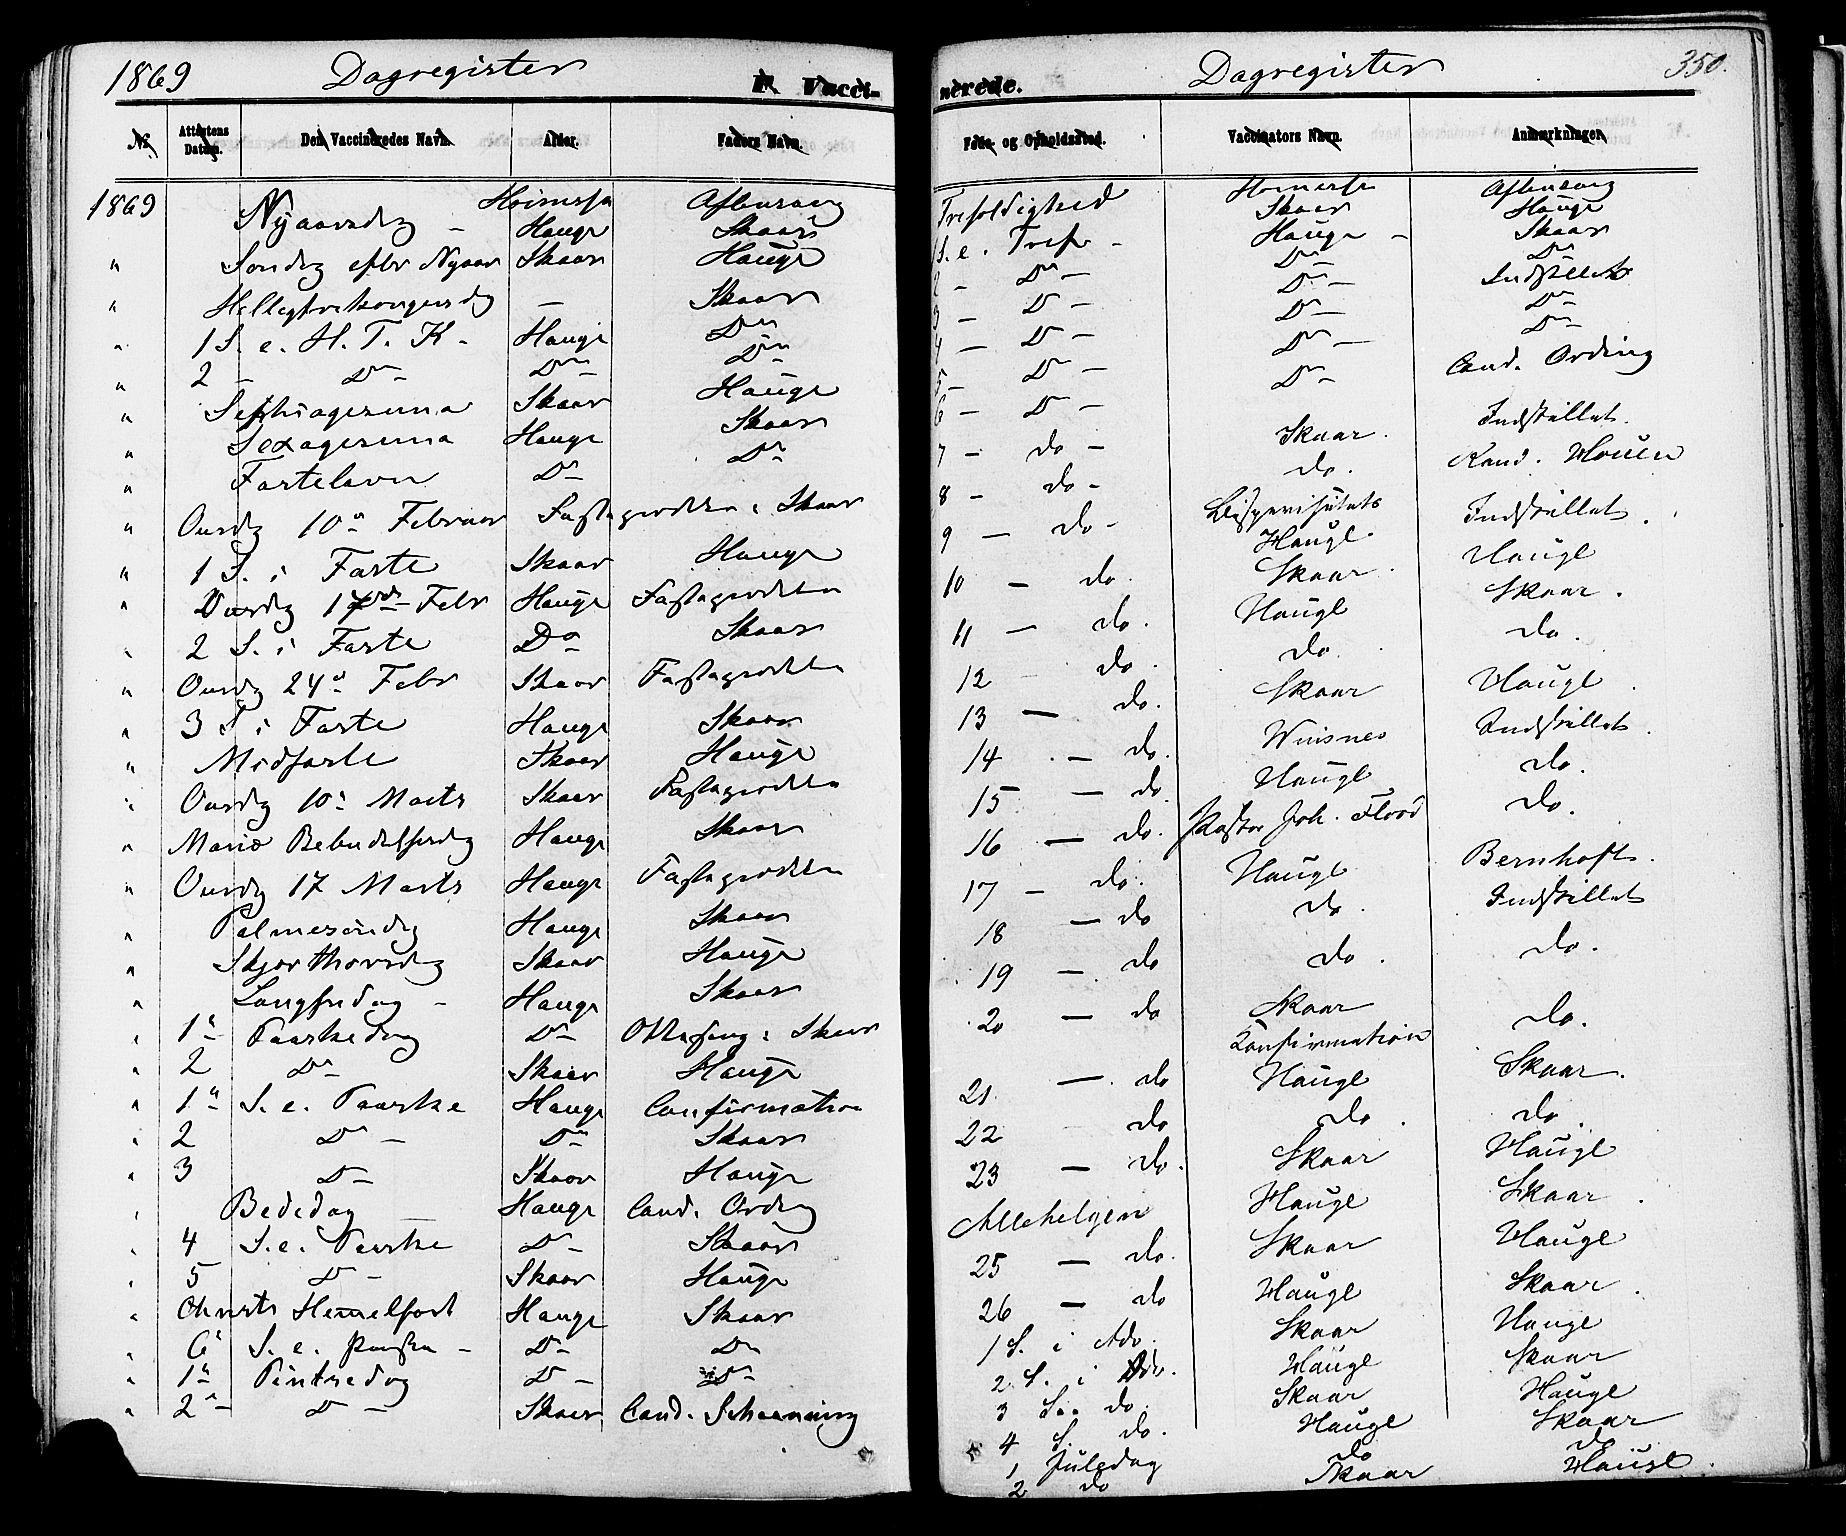 1869 Dagregister F. Vacci-
No. Attestens Datum. Den Vaccineredes Navn. Alder. Faders Navn.
1869 Nyaarsdag - Høimesse Hauge Aftensang Skaar
" Søndag efter Nyaar Skaar Hauge
" Helligtrekongersdag — Skaar
" 1 S. e. H. T. K. - Hauge Do
" 2 - Do - Do Do
" Septuagesima Skaar Hauge
" Sexagesima Hauge Skaar
" Fastelavn Do Do
" Onsdag 10de Februar Fasteprædiken : Skaar
" 1 S. i Faste Skaar Hauge
" Onsdag 17de Febr Hauge Fasteprædiken
" 2 S. i Faste Do Skaar
" Onsdag 24de Febr Skaar Fasteprædiken
" 3 S i Faste Hauge Skaar
" Midfaste Skaar Hauge
" Onsdag 10de Marts Skaar Fasteprædiken
" Mariæ Bebudelsesdag Hauge Skaar
" Onsdag 17 Marts Hauge Fasteprædiken
" Palmesøndag Hauge Skaar
" Skjærthorsdag Skaar Hauge
" Langfredag - Hauge Skaar
" 1ste Paaskedag Do Ottesang : Skaar
" 2 Do Skaar Hauge
" 1ste S. e. Paaske Hauge Confirmation
" 2 Do - Do Skaar
" 3 Do - Skaar Hauge
" Bededag — Hauge Cand. Ording
" 4 S. e. Paaske Do - Skaar
" 5 Do - Skaar Hauge
" Christi Hemmelfart Hauge Skaar
" 6te S. e. Paaske - Do - Do
" 1ste Pintsedag Do - Do
" 2den Do - Skaar Cand. Schoenning
nerede. Dagregister 350.
Føde- og Opholdssted. Vaccinators Navn. Anmærkninger.
Høimesse Aftensang
Trefoldighed Skaar Hauge
1 S. e. Tref. - Hauge - Skaar
2 - Do - Do Do
3 - Do - Do - Indstillet
4 - Do - Do - Do
5 - Do - Do - Do
6 - Do - Do - Cand. Ording
7 - do - Skaar. Indstillet.
8 - do - do. Kand. Houen
9 - do - Bispevisitats Indstillet.
Hauge.
10 - do. Skaar. Hauge
11 - do. Hauge Skaar.
12 - do. do. do.
13 - do. Skaar Hauge.
14 - do. Winsnes Indstillet.
15 - do. Hauge do.
16 - do. Pastor Joh. Flood do.
17 - do. Hauge Bernhoft.
18 - do do. Indstillet
19 - do do. do.
20 - do Skaar do.
Konfirmation
21 - do Hauge Skaar.
22 do do. do.
23 - do. Skaar Hauge
Allehelgen Hauge Skaar.
25 - do. Skaar Hauge
26 - do Hauge Skaar.
1 S. i Adv. Skaar Hauge
2 S. i Adv. Hauge Skaar
3 S. do. Skaar Hauge
4 S. do. Hauge Skaar
1 Juledag do do
2 do Skaar Hauge.